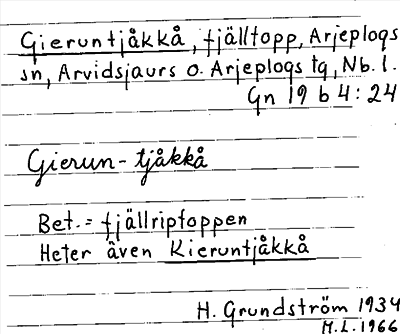 Gieruntjåkkå, fjälltopp, Arjeplogs
sn, Arvidsjaurs o. Arjeplogs tg, Nb. l.
Gn 19 b 4:24
Gierun-tjåkkå
Bet. = fjällriptoppen
Heter även Kieruntjåkkå
H. Grundström 1934
M.L. 1966